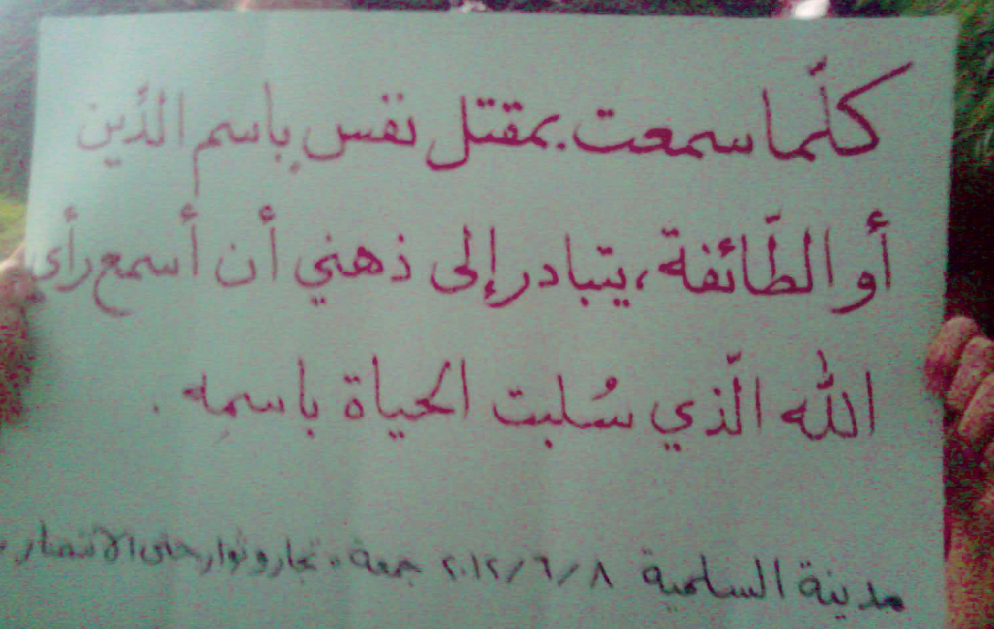 كلّما سمعت بمقتل نفس باسم الدّين
أو الطّائفة، يتبادر إلى ذهني أن أسمع رأي
الله الّذي سُلبت الحياة باسمِه .
مدينة السلمية ٨/٦/٢٠١٢ جمعة " تجار وثوار حتى الانتصار "